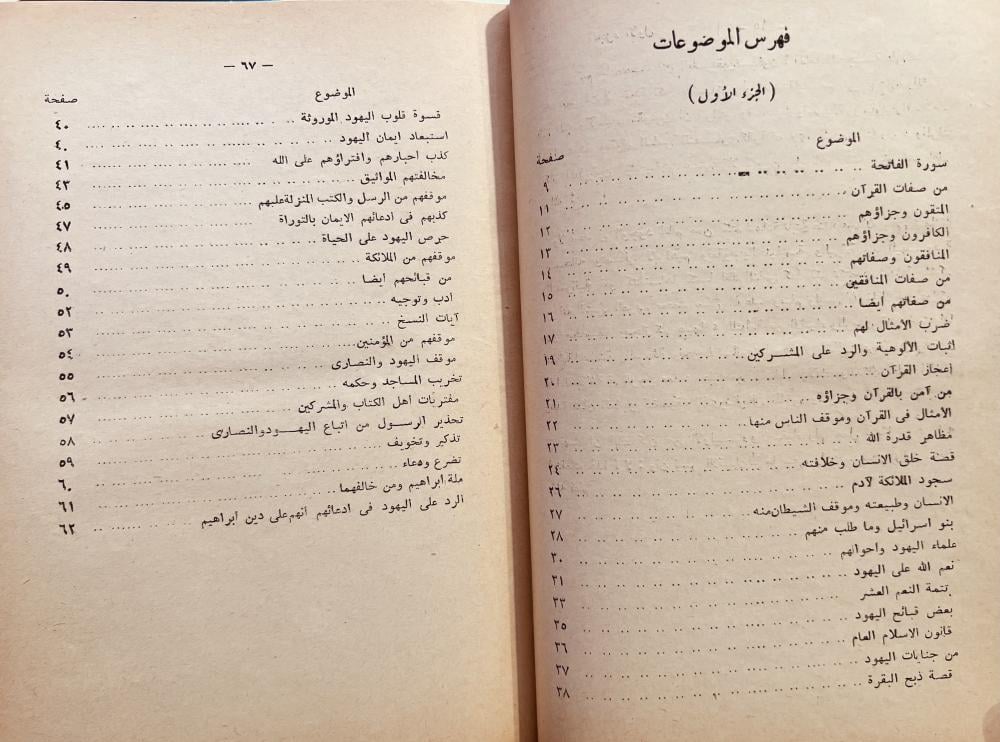 فهرس الموضوعات
(الجزء الأول)
الموضوع صفحة
سورة الفاتحة ٩
من صفات القرآن ١١
المتقون وجزاؤهم ١٢
الكافرون وجزاؤهم ١٣
المنافقون وصفاتهم ١٤
من صفات المنافقين ١٥
من صفاتهم أيضا ١٦
ضرب الأمثال لهم ١٧
اثبات الألوهية والرد على المشركين ١٩
اعجاز القرآن ٢٠
من آمن بالقرآن وجزاؤه ٢١
الأمثال فى القرآن وموقف الناس منها ٢٢
مظاهر قدرة الله ٢٣
قصة خلق الانسان وخلافته ٢٤
سجود الملائكة لآدم ٢٦
الانسان وطبيعته وموقف الشيطان منه ٢٧
بنو اسرائيل وما طلب منهم ٢٨
علماء اليهود وأحوالهم ٣٠
نعم الله على اليهود ٣١
تتمة النعم العشر ٣٣
بعض قبائح اليهود ٣٥
قانون الاسلام العام ٣٦
من جنايات اليهود ٣٧
قصة ذبح البقرة ٣٨
— ٦٧ —
الموضوع صفحة
قسوة قلوب اليهود الموروثة ٤٠
استبعاد ايمان اليهود ٤٠
كذب أحبارهم وافتراؤهم على الله ٤١
مخالفتهم المواثيق ٤٣
موقفهم من الرسل والكتب المنزلة عليهم ٤٥
كذبهم فى ادعائهم الايمان بالتوراة ٤٧
حرص اليهود على الحياة ٤٨
موقفهم من الملائكة ٤٩
من قبائحهم أيضا ٥٠
أدب وتوجيه ٥٢
آيات النسخ ٥٣
موقفهم من المؤمنين ٥٤
موقف اليهود والنصارى ٥٥
تخريب المساجد وحكمه ٥٦
مفتريات أهل الكتاب والمشركين ٥٧
تحذير الرسول من اتباع اليهود والنصارى ٥٨
تذكير وتخويف ٥٩
تضرع ودعاء ٦٠
ملة ابراهيم ومن خالفهما ٦١
الرد على اليهود فى ادعائهم أنهم على دين ابراهيم ٦٢